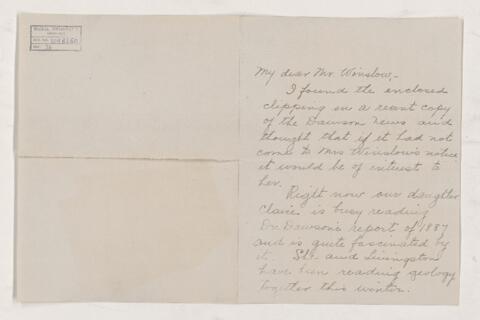 My dear Mr. Winslow,-
I found the enclosed
clipping in a recent copy
of the Dawson News and
thought that if it had not
come to Mrs Winslow's notice
it would be of interest to
her.
Right now our daughter
Claire is busy reading
Dr. Dawson's report of 1887
and is quite fascinated by
it. She and Livingston
have been reading geology
together this winter.